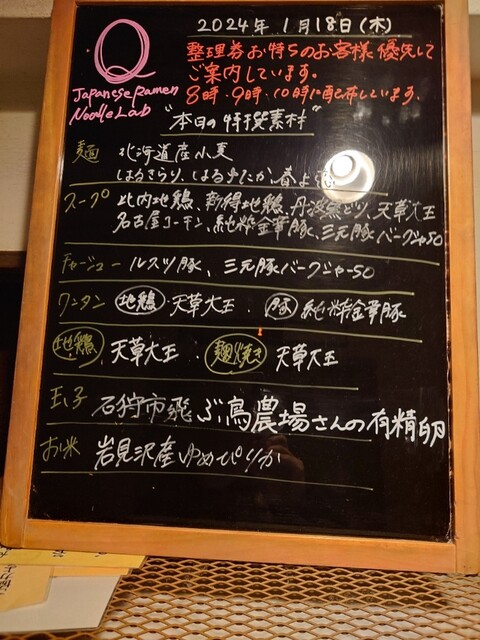 Q
Japanese Ramen
Noodle Lab
2024年 1月18日(木)
整理券お持ちのお客様優先して
ご案内しています。
8時・9時・10時に配布しています。
"本日の特撰素材"
麺 北海道産小麦
はるきらり、はるゆたか、春よ
スープ 比内地鶏、新得地鶏、丹波黒どり、天草大王
名古屋コーチン、純粋金華豚、三元豚バークジャー50
チャーシュー ルスツ豚、三元豚バークジャー50
ワンタン 地鶏・天草大王・豚 純粋金華豚
地鶏 天草大王・麹焼き 天草大王
玉子 石狩市飛ぶ鳥農場さんの有精卵
お米 岩見沢産ゆめぴりか